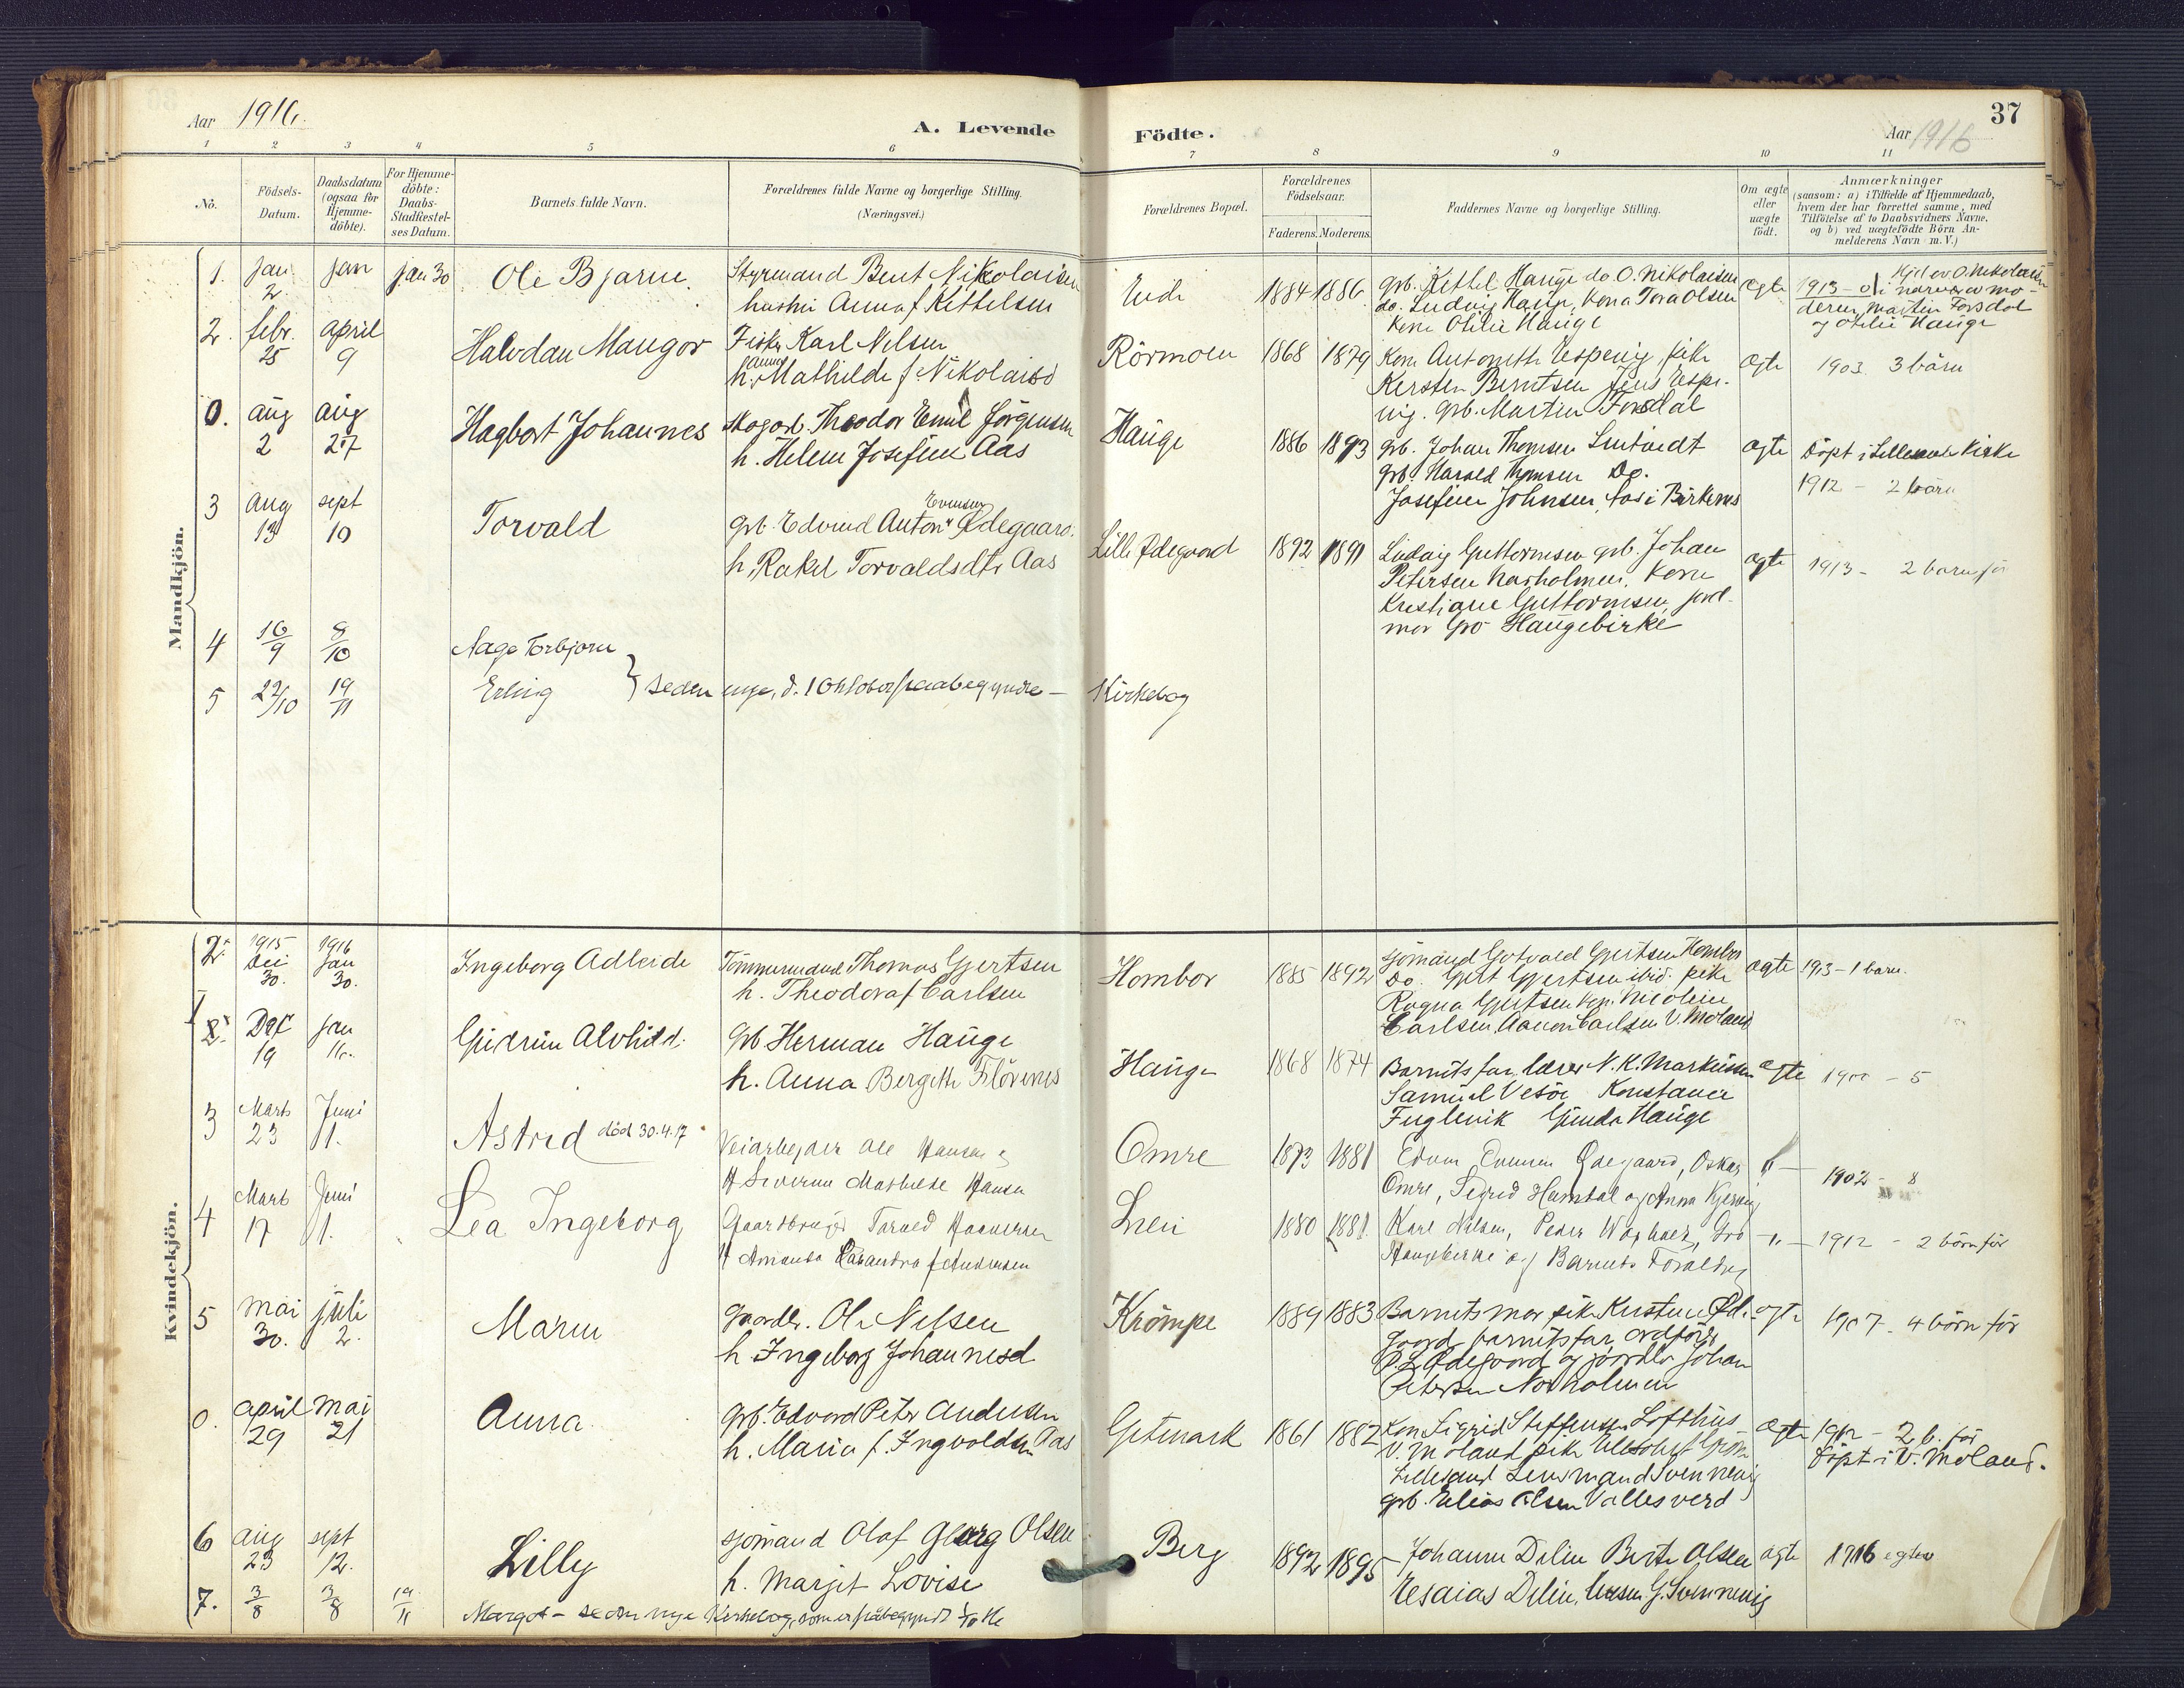 Aar 1916.
A. Levende
Födte.
37
Aar 1916
1 2 3 4 5 6 7 8 9 10 11
No.
Födsels-Datum.
Daabsdatum (ogsaa for Hjemme-döbte).
For Hjemme-döbte: Daabs-Stadfæstel-ses Datum.
Barnets fulde Navn.
Forældrenes fulde Navne og borgerlige Stilling. (Næringsvei.)
Forældrenes Bopæl.
Forældrenes Födselsaar.
Faderens. Moderens.
Faddernes Navne og borgerlige Stilling.
Om ægte eller uægte födt.
Anmærkninger
(saasom: a) i Tilfælde af Hjemmedaab,
hvem der har forrettet samme, med
Tilföielse af to Daabsvidners Navne,
og b) ved uægtefödte Börn An-
melderens Navn m. V.)
Mandkjön.
1. Jan 2. Jan Jan 30 Ole Bjarne. Styrmand Bent Nikolaisen
hustru Anna f. Kittelsen
1884 1886 grb. Kittel Hauge do. O. Nikolaisen
do. Ludvig Hauge, kona Tora Olsen
kone Otilie Hauge
ægte 1913 - Hjd. av O. Nikolaisen
deren, Martin Forsdal
og Otilie Hauge
2. febr. 25 april 9 Halvdan Maugor Fisker Karl Nilsen
h. Anne Mathilde f. Nikolaisd
Rörmoen 1868 1879 Kone Antonette Espenig, pike
Kersten Berntsen Jens Espe-
nig. grb. Martin Forsdal
ægte 1903. 3 bårn
0. aug 2 aug 27 Hagbart Johannes skogarb. Theodor Emil Jörgensen
h. Helene Josefine Aas
Hauge 1886 1893 grb. Johan Thomsen Lintvedt
grb. Harald Thomsen Do.
Josefine Johnsen, Aas i Birkenes
ægte Döpt i Lillesands Kirke
1912 - 2 bårn
3 aug 13 sept 10 Torvald grb. Edvind Anton Evensen Ødegaard.
h. Rakel Torvaldsdtr Aas
Lille Ødegaard 1892 1891 Ludvig Guttormsen grb. Johan
Petersen Narholmen. Kone
Kristiane Guttormsen, jord-
mor Gro Haugebirke
ægte 1913 - 2 barn før
4 16/9 8/10 Aage Torbjorn
5 22/10 19/11 Erling } se den nye, d. 1 Oktober paabegyndte - Kirkebog
Kvindekjön.
1915 Dec 30. 1916 Jan 30. Ingeborg Adleide Tömmermand Thomas Gjertsen
h. Theodora f. Carlsen
Hombor 1885 1892 sjömand Gotvald Gjertsen Hombor
Do. Gjert Gjertsen ibid. pike
Ragna Gjertsen kone Nicoline
Carlsen, Aanon Carlsen V. Moland
ægte 1913 - 1 barn.
Dec 19 Jan 16. Gudrun Alvhild. Gb Herman Hauge
h. Anna Bergitte Flövenes
Hauge 1868 1874 Barnets far, lærer N. K. Markussen
Samuel Vesöe Konstance
Fuglevik Gunda Hauge
ægte 1900 - 5
3 Marts 23 Juni 1. Astrid död 30.4.17 Veiarbejder Ole Hansen og
H Severine Mathilde Hansen
Omre 1873 1881 Edvin Evensen Ødegaard, Oskar
Omre, Sigrid Hamdal og Anna Kjerevig
-"- 1902 - 8
4 Marts 17 Juni 1. Lea Ingeborg Gaardbruger Tarald
H Amanda f Andersen
1880 1881. Karl Nilsen, Peder Gro
Haugebirke og Barnets Forældre
-"- 1912 - 2 börn för
5 mai 30. juli 2. Maren Gaardbr. Ole Nilsen
h Ingeborg Johannesd
Krömpe 1889 1883 Barnets mor, pike Kristine Øde-
gaard, barnets far, ordförer
O. L. Ødegaard og gaardbr Johan
Petersen Narholmen
ægte 1907 - 4 börn för
0. april 29 mai 21 Anna grb. Edvard Peter Andersen
h. Maria f. Ingvoldsen Aas
Gitmark 1861 1882 Kone Sigrid Steffensen Lofthus
V. Moland pike
Lillesand Lensmand Svennevig
grb. Elias Olsen Vallesverd
ægte 1912 - 2 b. før
Döpt i V. Moland.
6 aug 23 sept 12. Lilly sjömand Olaf Georg Olsen
h. Margit Lovise
Berg 1892 1895 Johanne Delin Berte Olsen
Esaias Delin, G. Svennevig
ægte 1916 egtev
7. 3/8 3/8 19/11 Margot - se den nye Kirkebog, som er påbegyndt 1/10 16